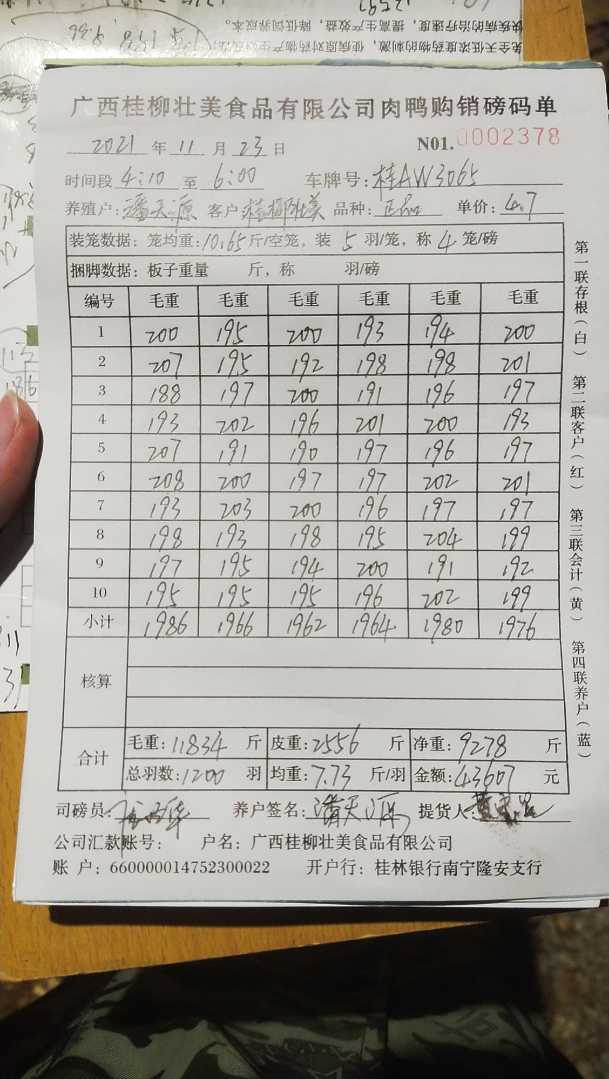 广西桂柳壮美食品有限公司肉鸭购销磅码单
2021 年 11 月 23 日 N01. 0002378
时间段 4:10 至 6:00 车牌号: 桂AW3065
养殖户: 潘天源 客户: 桂柳壮美 品种: 正品 单价: 4.7
装笼数据: 笼均重: 10.65 斤/空笼, 装 5 羽/笼, 称 4 笼/磅
捆脚数据: 板子重量 斤, 称 羽/磅
编号 毛重 毛重 毛重 毛重 毛重 毛重
1 200 195 200 193 194 200
2 207 195 192 198 198 201
3 188 197 200 191 196 197
4 193 202 196 201 200 193
5 207 191 190 197 196 197
6 208 200 197 197 202 201
7 193 203 200 196 197 197
8 198 193 198 195 204 199
9 197 195 194 200 191 192
10 195 195 195 196 202 199
小计 1986 1966 1962 1964 1980 1976
核算
合计
毛重: 11834 斤 皮重: 2556 斤 净重: 9278 斤
总羽数: 1200 羽 均重: 7.73 斤/羽 金额: 43607 元
司磅员: 养户签名: 潘天源 提货人:
公司汇款账号: 户名: 广西桂柳壮美食品有限公司
账 户: 660000014752300022 开户行: 桂林银行南宁隆安支行
第一联存根(白)
第二联客户(红)
第三联会计(黄)
第四联养户(蓝)